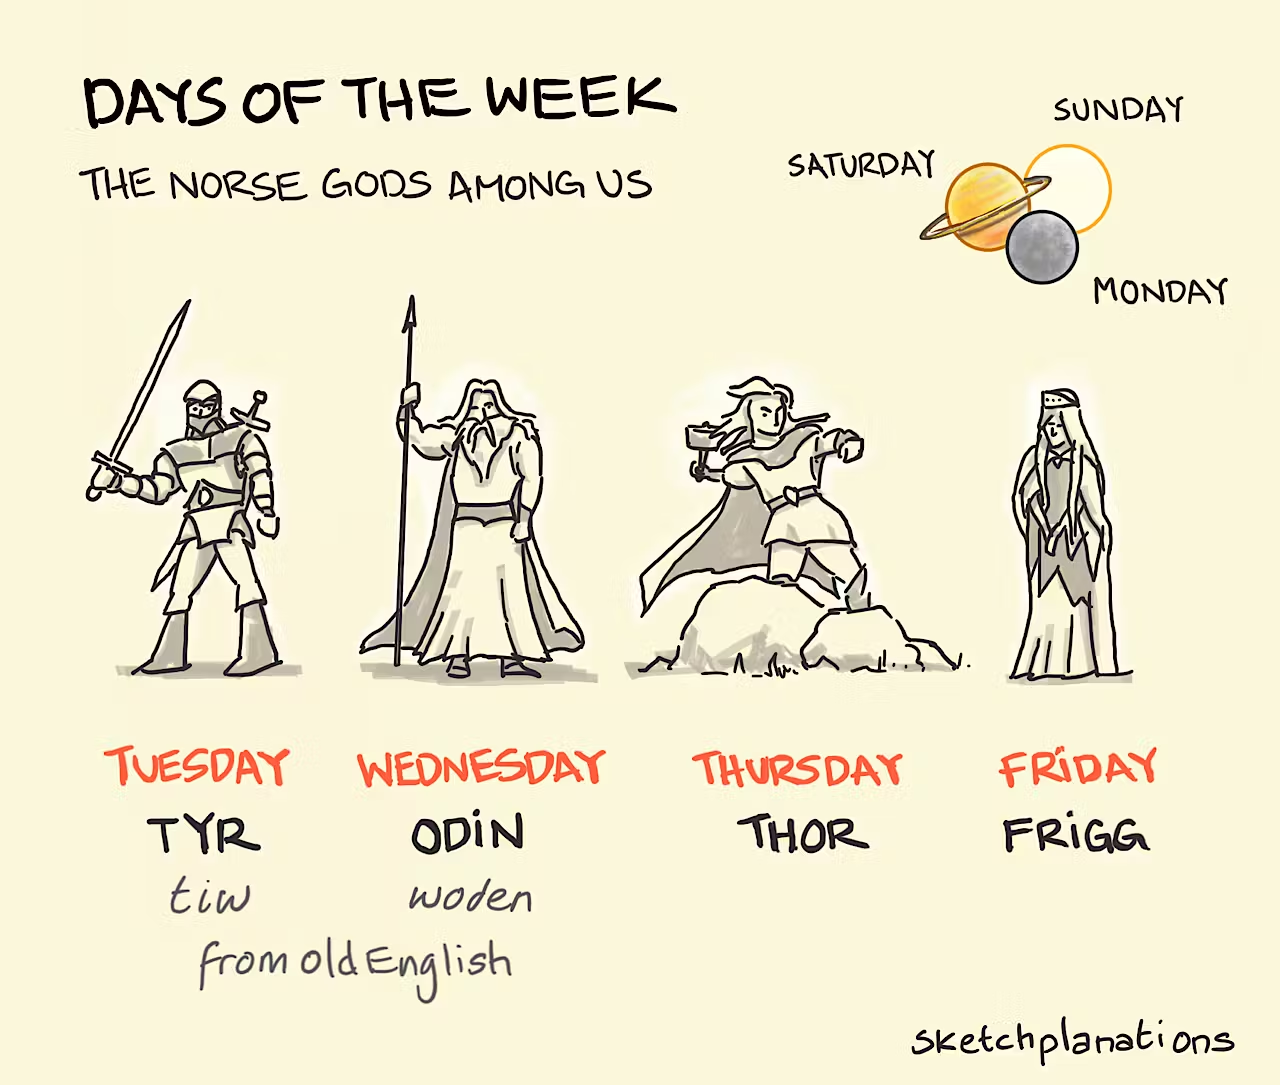 DAYS OF THE WEEK
THE NORSE GODS AMONG US
SUNDAY
SATURDAY
MONDAY
TUESDAY
TYR
tiw
WEDNESDAY
ODIN
woden
from old English
THURSDAY
THOR
FRIDAY
FRIGG
sketchplanations